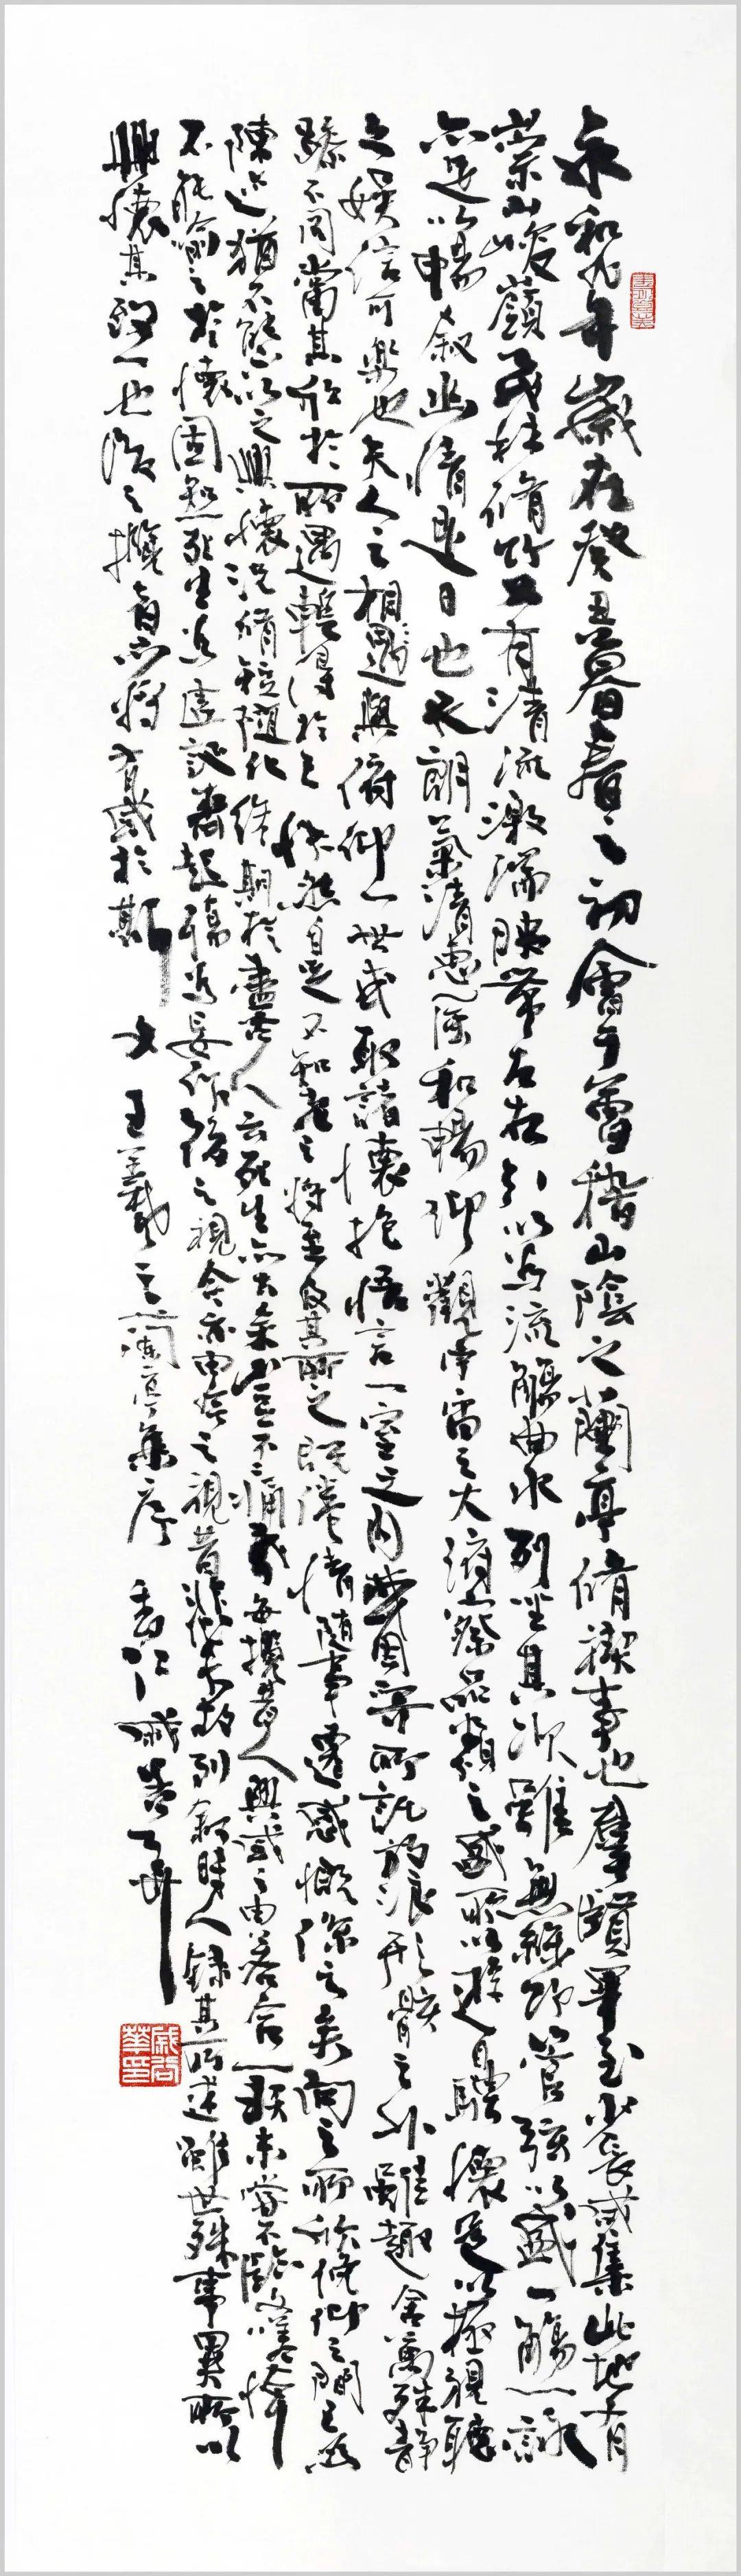 永和九年歲在癸丑暮春之初會于會稽山陰之蘭亭脩禊事也羣賢畢至少長咸集此地有
崇山峻嶺茂林脩竹又有清流激湍映帶左右引以為流觴曲水列坐其次雖無絲竹管弦之盛一觴一詠
亦足以暢敘幽情是日也天朗氣清惠風和暢仰觀宇宙之大俯察品類之盛所以遊目騁懷足以極視聽
之娛信可樂也夫人之相與俯仰一世或取諸懷抱悟言一室之內或因寄所託放浪形骸之外雖趣舍萬殊靜
躁不同當其欣於所遇暫得於己快然自足不知老之將至及其所之既倦情隨事遷感慨係之矣向之所欣俛仰之間已為
陳迹猶不能不以之興懷況脩短隨化終期於盡古人云死生亦大矣豈不痛哉每攬昔人興感之由若合一契未嘗不臨文嗟悼
不能喻之於懷固知死生為虛誕齊彭殤為妄作後之視今亦由今之視昔悲夫故列敘時人錄其所述雖世殊事異所以
興懷其致一也後之攬者亦將有感於斯文 王羲之蘭亭集序